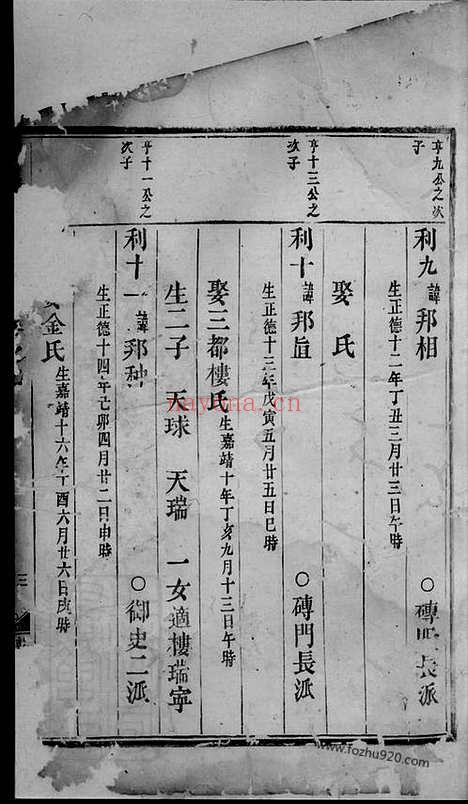 亨九公之次子
利九 諱 邦相 ○ 磚門長派
生正德十二年丁丑三月廿三日午時
娶 氏
亨十三公之次子
利十 諱 邦直 ○ 磚門長派
生正德十三年戊寅五月廿五日巳時
娶三都樓氏 生嘉靖十年丁亥九月十三日午時
生二子 天球 天瑞 一女適樓瑞寧
亨十一公之次子
利十一 諱 邦 ○ 御史二派
生正德十四年己卯四月廿二日申時
金氏 生嘉靖十六年丁酉六月廿六日 時
三
nayona.cn
www.fozhu920.com